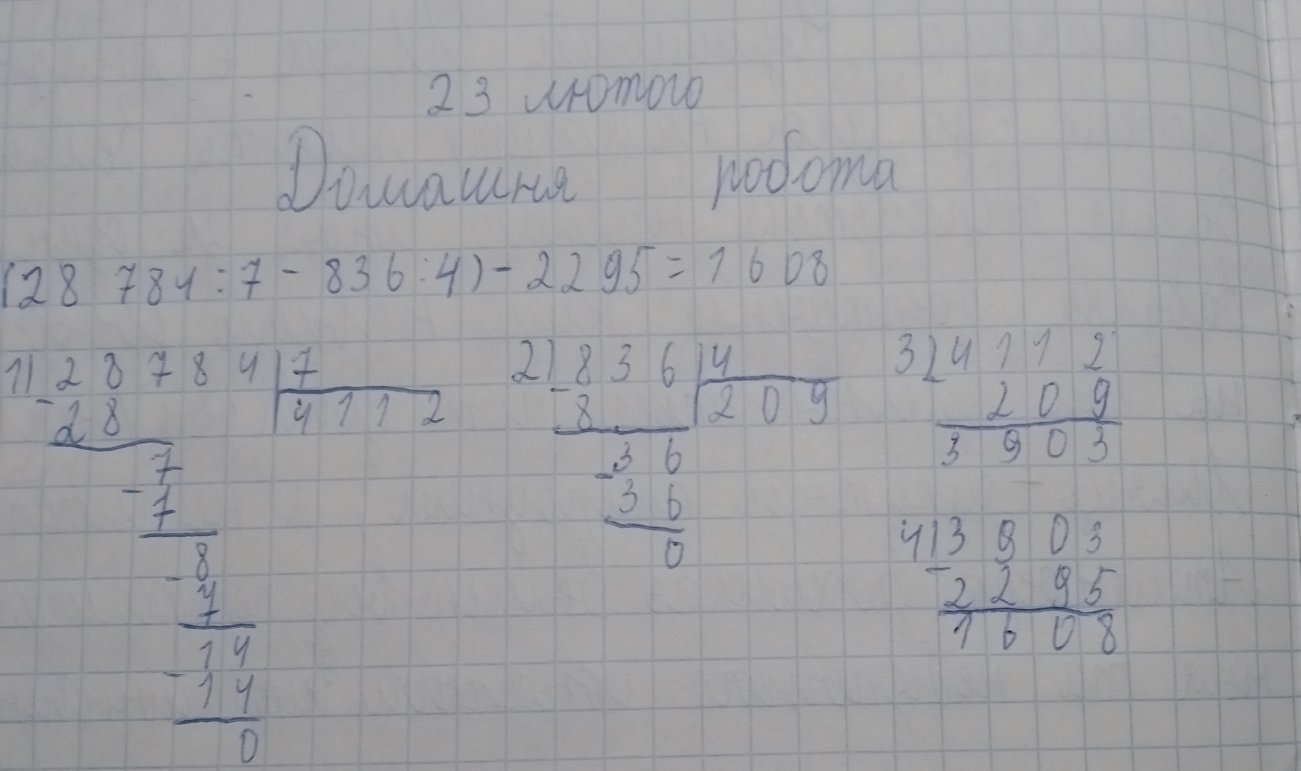 23 лютого
Домашня робота
(28 784:7-836:4)-2295=1608
1) 28784 | 7
- 28 | 4112
7
- 7
8
- 7
14
- 14
0
2) - 836 | 4
8 | 209
36
- 36
0
3) - 4112
209
3903
4) - 3903
2295
1608